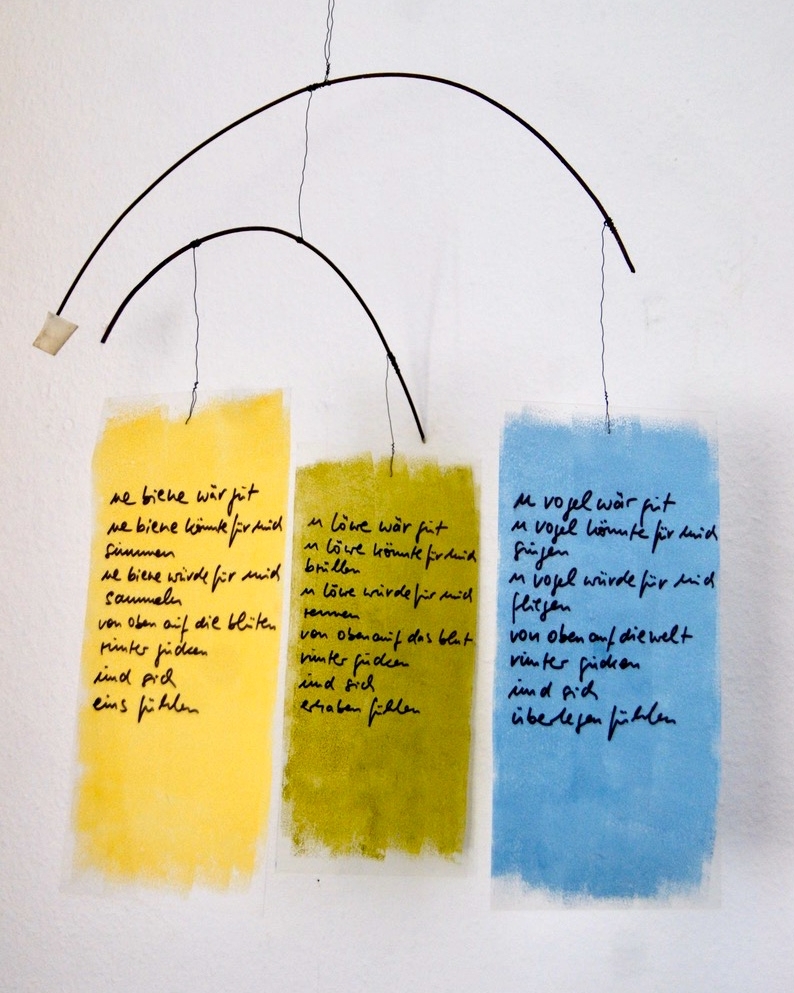 ne biene wär gut
ne biene könnte für mich
summen
ne biene würde für mich
sammeln
von oben auf die blüten
runter gucken
und sich
eins fühlen
n löwe wär gut
n löwe könnte für mich
brüllen
n löwe würde für mich
rennen
von oben auf das blut
runter gucken
und sich
erhaben fühlen
n vogel wär gut
n vogel könnte für mich
singen
n vogel würde für mich
fliegen
von oben auf die welt
runter gucken
und sich
überlegen fühlen